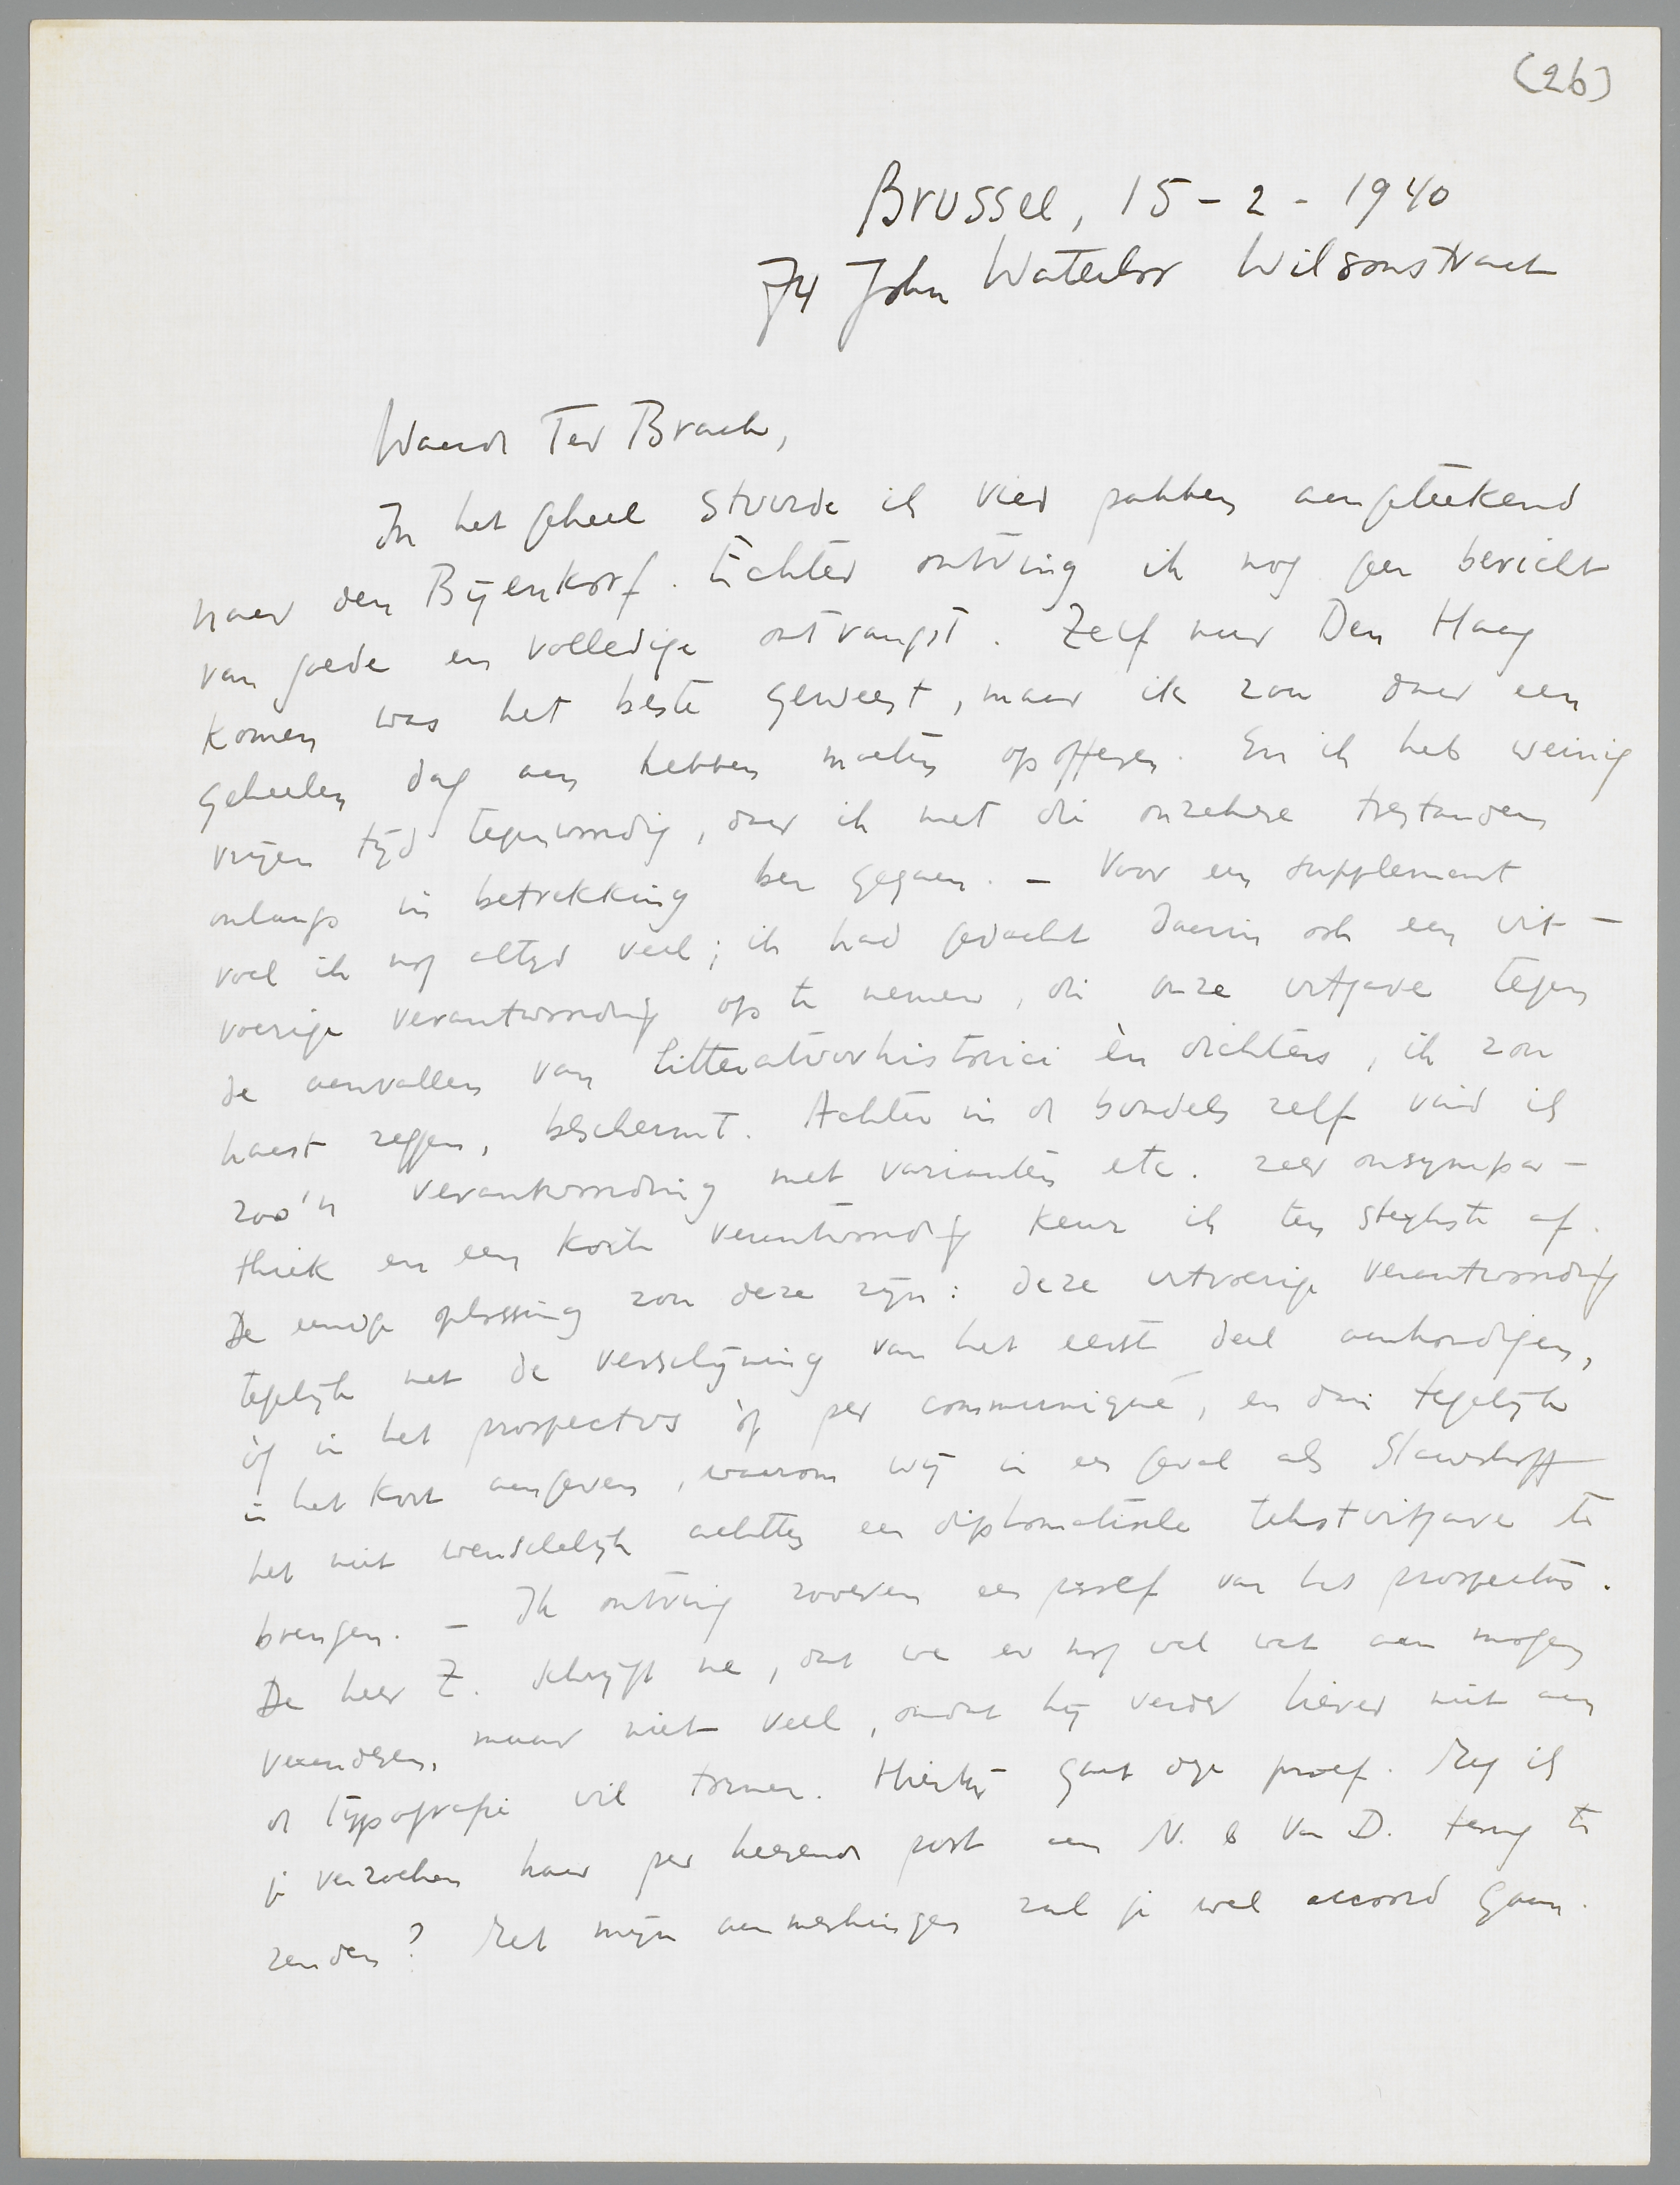 (26)
Brussel, 15-2-1940
74 John Waterloo Wilsonstraat
Waarde Ter Braak,
In het geheel stuurde ik vier pakken aangeteekend
naar den Bijenkorf. Echter ontving ik nog geen bericht
van goede en volledige ontvangst. Zelf naar Den Haag
komen was het beste geweest, maar ik zou daar een
geheelen dag aan hebben moeten opofferen. En ik heb weinig
vrijen tijd tegenwoordig, daar ik met die onzekere toestanden
onlangs in betrekking ben gegaan. – Voor een supplement
voel ik nog altijd veel; ik had gedacht daarin ook een uit-
voerige verantwoording op te nemen, die onze uitgave tegen
de aanvallen van litteratuurhistorici èn dichters, ik zou
haast zeggen, beschermt. Achter in de bundels zelf vind ik
zoo'n verantwoording met varianten etc. zeer onsympa-
thiek en een korte verantwoording keur ik ten stelligste af.
De eenige oplossing zou deze zijn: deze uitvoerige verantwoording
tegelijk met de verschijning van het eerste deel aankondigen,
òf in het prospectus òf per communiqué, en dan tegelijk
in het kort aangeven, waarom wij in een geval als Slauerhoff
het niet wenschelijk achtten een diplomatische tekstuitgave te
brengen. – Ik ontving zooeven een proef van het prospectus.
De heer Z. schrijft me, dat we er nog wel wat aan mogen
veranderen, maar niet veel, omdat hij verder liever niet aan
de typografie wil tornen. Hierbij gaat deze proef. Mag ik
je verzoeken haar per keerende post aan N. & Van D. terug te
zenden? Met mijn aanmerkingen zul je wel accoord gaan.